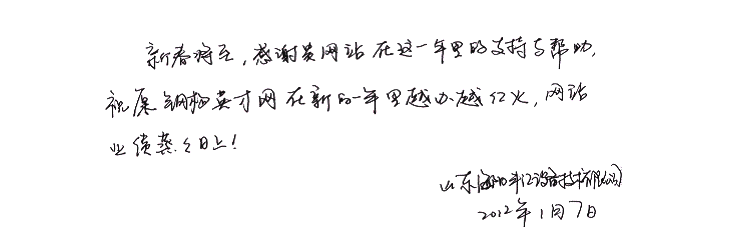 新春将至，感谢贵网站在这一年里的支持与帮助，
祝愿钢构英才网在新的一年里越办越红火，网站
业绩蒸蒸日上！
山东 有限公司
2012年1月7日